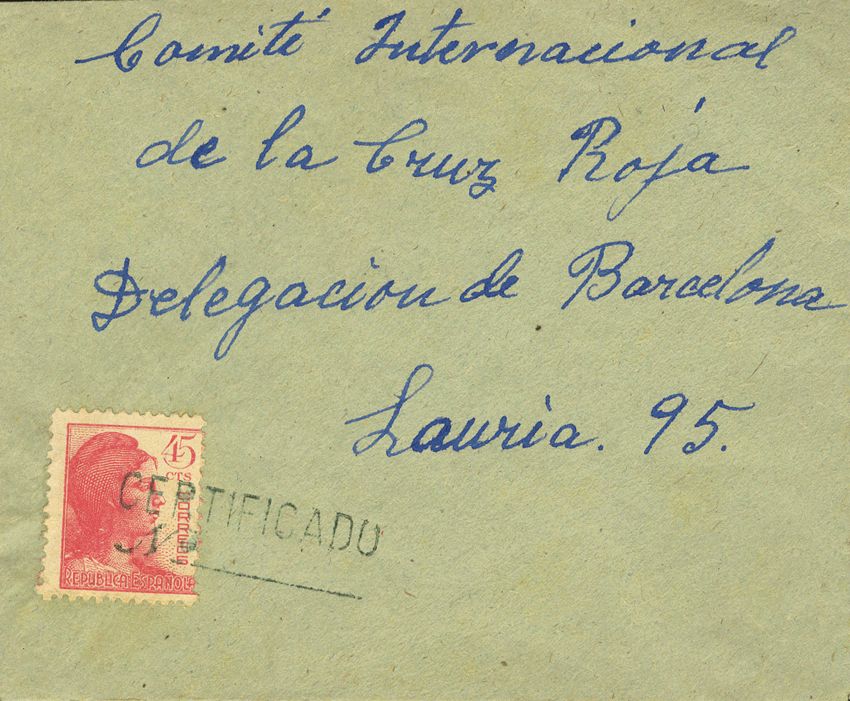 Comité Internacional
de la Cruz Roja
Delegacion de Barcelona
Lauria. 95.
45
CTS
CORREOS
REPUBLICA ESPAÑOLA
CERTIFICADO